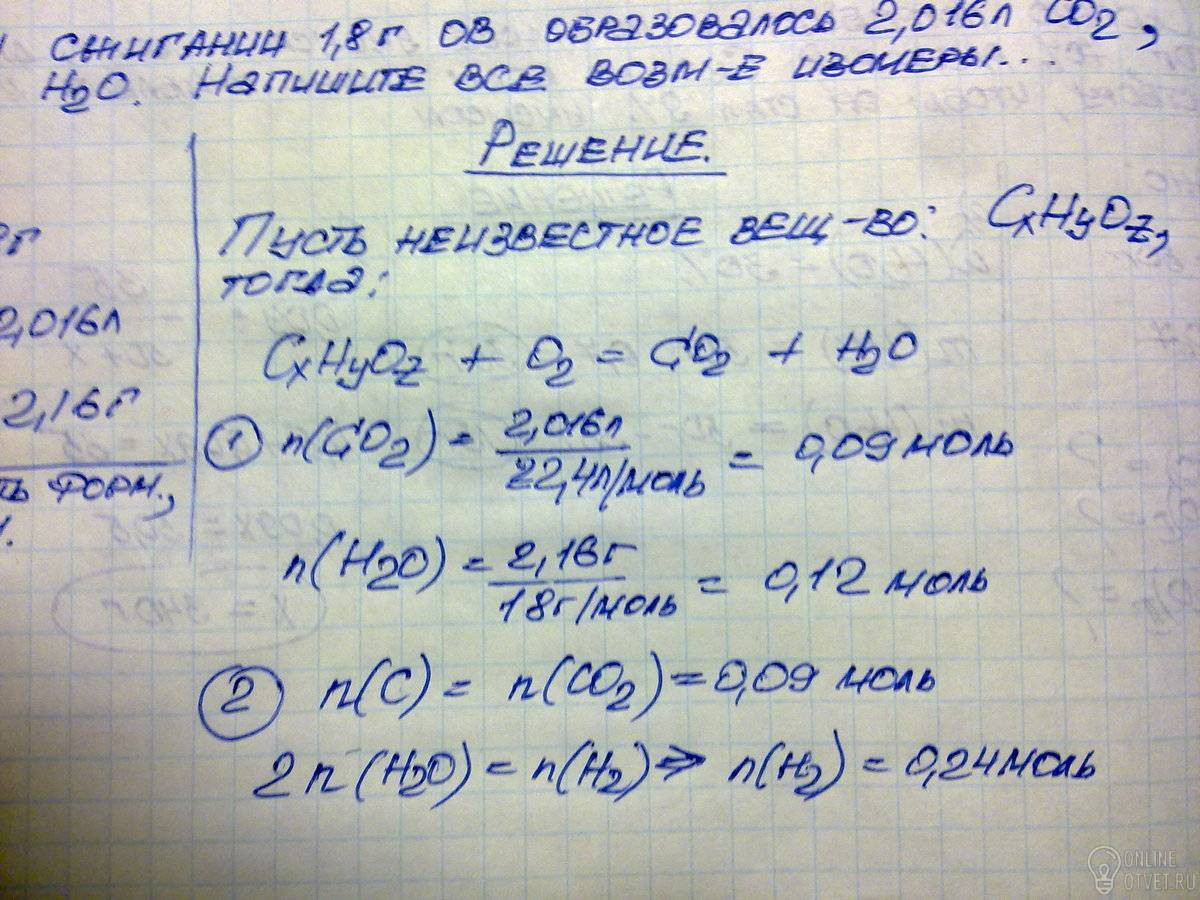 сжигании 1,8г ОВ образовалось 2,016л CO2,
H2O. Напишите все возм-е изомеры...
Решение.
г
2,016л
2,16г
ть форм.,
Пусть неизвестное вещ-во: CxHyOz,
тогда:
CxHyOz + O2 = CO2 + H2O
1 n(CO2) = 2,016л / 22,4л/моль = 0,09 моль
n(H2O) = 2,16г / 18г/моль = 0,12 моль
2 n(C) = n(CO2) = 0,09 моль
2n(H2O) = n(H2) ⇒ n(H2) = 0,24 моль
ONLINE
OTVET.RU